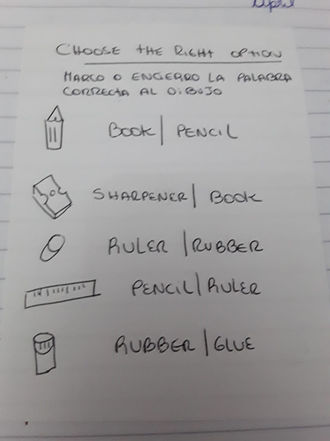 April
CHOOSE THE RIGHT OPTION
MARCO O ENCIERRO LA PALABRA
CORRECTA AL DIBUJO
BOOK | PENCIL
SHARPENER | BOOK
RULER | RUBBER
PENCIL | RULER
RUBBER | GLUE